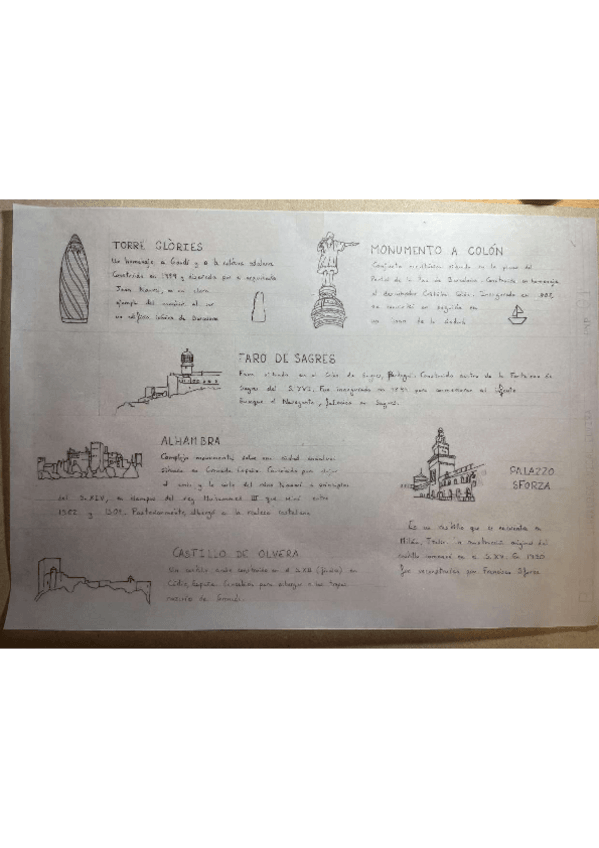 TORRE GLÒRIES
Un homenaje a Gaudí y a la cultura catalana
Construida en 1999 y diseñada por el arquitecto
Jean Nouvel, es un claro
ejemplo del
un edificio icónico de Barcelona
MONUMENTO A COLÓN
Conjunto escultórico situado en la plaza del
Portal de la Pau de Barcelona. Construido en homenaje
al descubridor Cristóbal Colón. Inaugurado en
se convirtió en seguida en
un icono de la ciudad
FARO DE SAGRES
Faro situado en el Cabo de Sagres, Portugal. Construido dentro de la Fortaleza de
Sagres del S. XVI. Fue inaugurado en para conmemorar al infante
Enrique el Navegante, fallecido en Sagres.
ALHAMBRA
Complejo monumental sobre una ciudad
situada en Granada, España. Construida para alojar
al emir y la corte del reino Nazarí a
del S. XIV, en tiempos del rey Muhammad que reinó entre
y Posteriormente, albergó a la realeza castellana.
PALAZZO
SFORZA
Es un castillo que se encuentra en
Milán, Italia. La construcción original del
castillo comenzó en el S. XIV. En 1450
fue reconstruido por Francisco Sforza
CASTILLO DE OLVERA
Un castillo árabe construido en el S. XII (finales) en
Cádiz, España. Construido para albergar a las tropas
nazaríes de Granada.